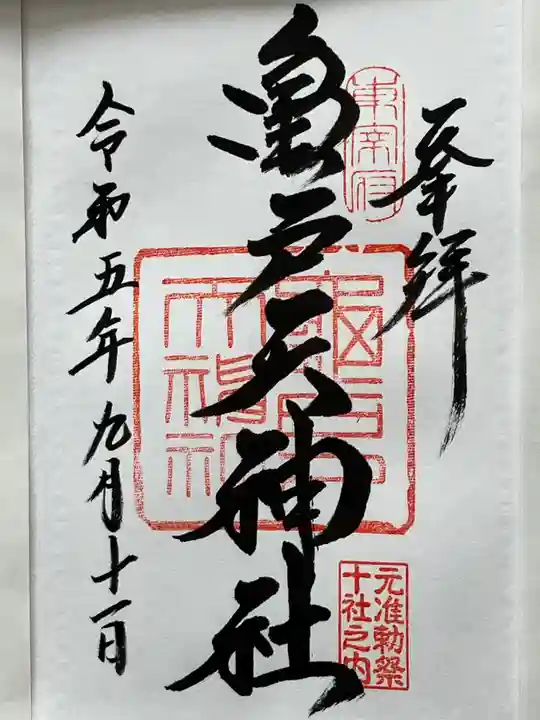 奉拝
亀戸天神社
東宰府
元准勅祭
十社之内
令和五年九月十一日